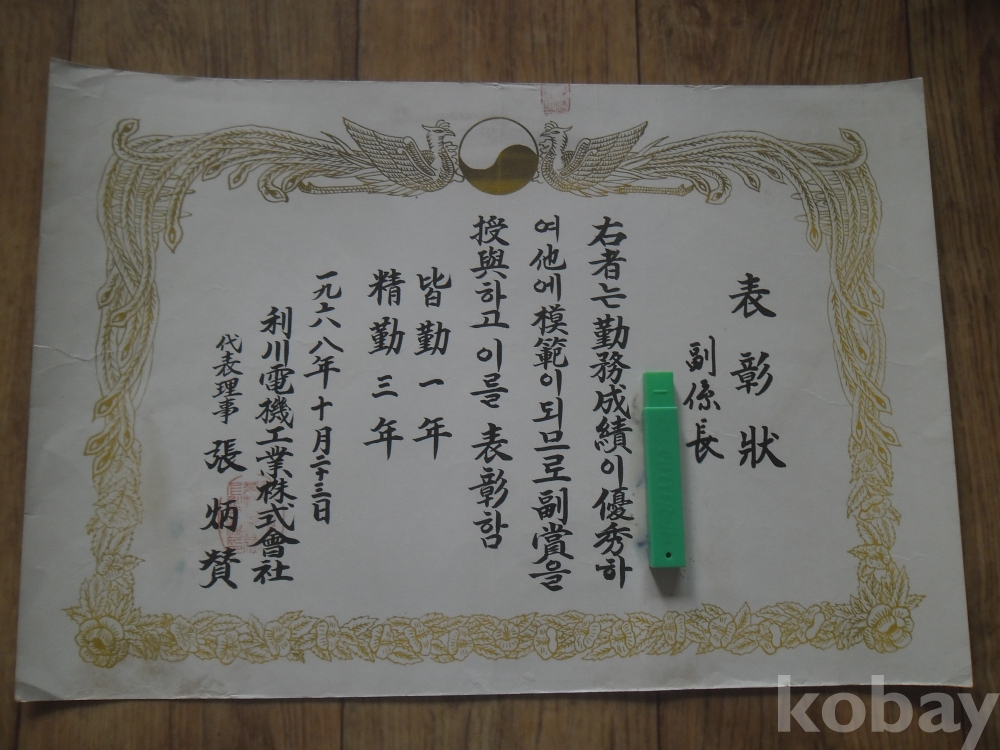 表彰狀
副係長
右者는勤務成績이優秀하
여他에模範이되므로副賞을
授與하고이를表彰함
皆勤一年
精勤三年
一九六八年十月二十三日
利川電機工業株式會社
代表理事 張炳贊
kobay